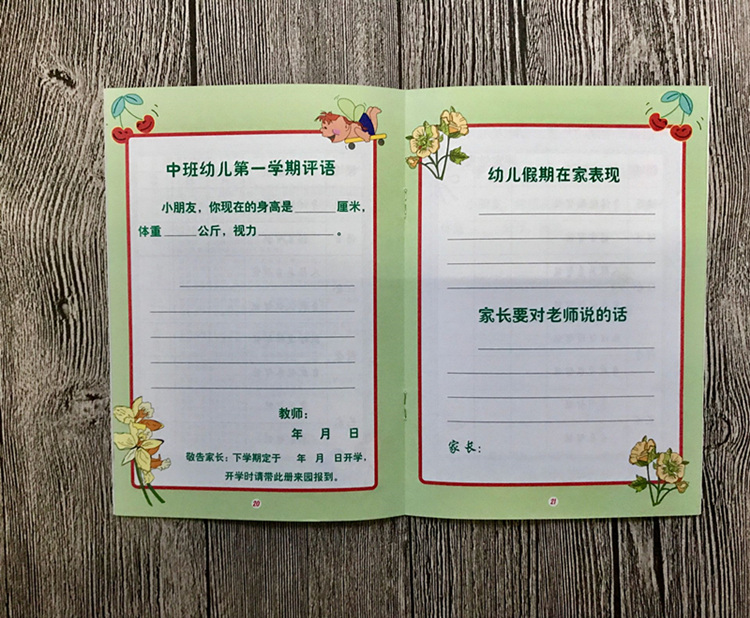 中班幼儿第一学期评语
小朋友，你现在的身高是______厘米，
体重_____公斤，视力___________。
教师：
年 月 日
敬告家长：下学期定于 年 月 日开学，
开学时请带此册来园报到。
20
幼儿假期在家表现
家长要对老师说的话
家长：
21